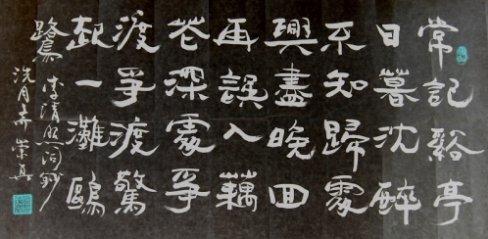 常記谿亭
日暮沈醉
不知歸處
興盡晚回
舟誤入藕
花深處爭
渡爭渡驚
起一灘鷗
鷺
李清照词鈔
洗月斋